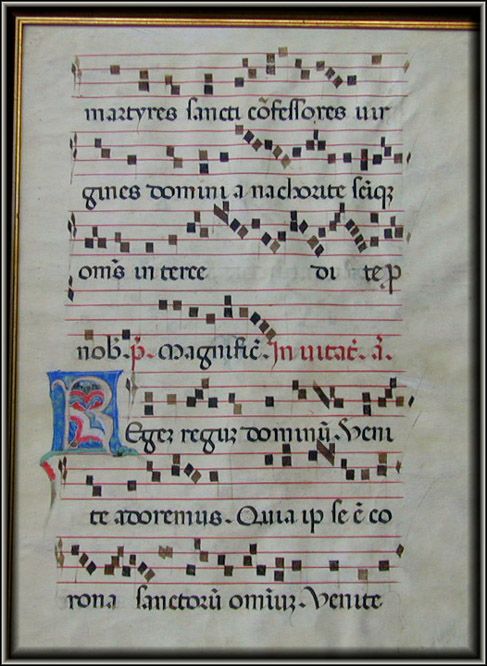 martyres sancti cōfessores uir
gines domini anachorite sc̄iqꝫ
oms̄ in terce di te p
nob̄. p̄. Magnific̄. In uitat̄. a.
Regeꝫ reguꝫ dominū. Veni
te adoremus. Quia ip se ē co
rona sanctorū omiū̄ꝫ. Venite